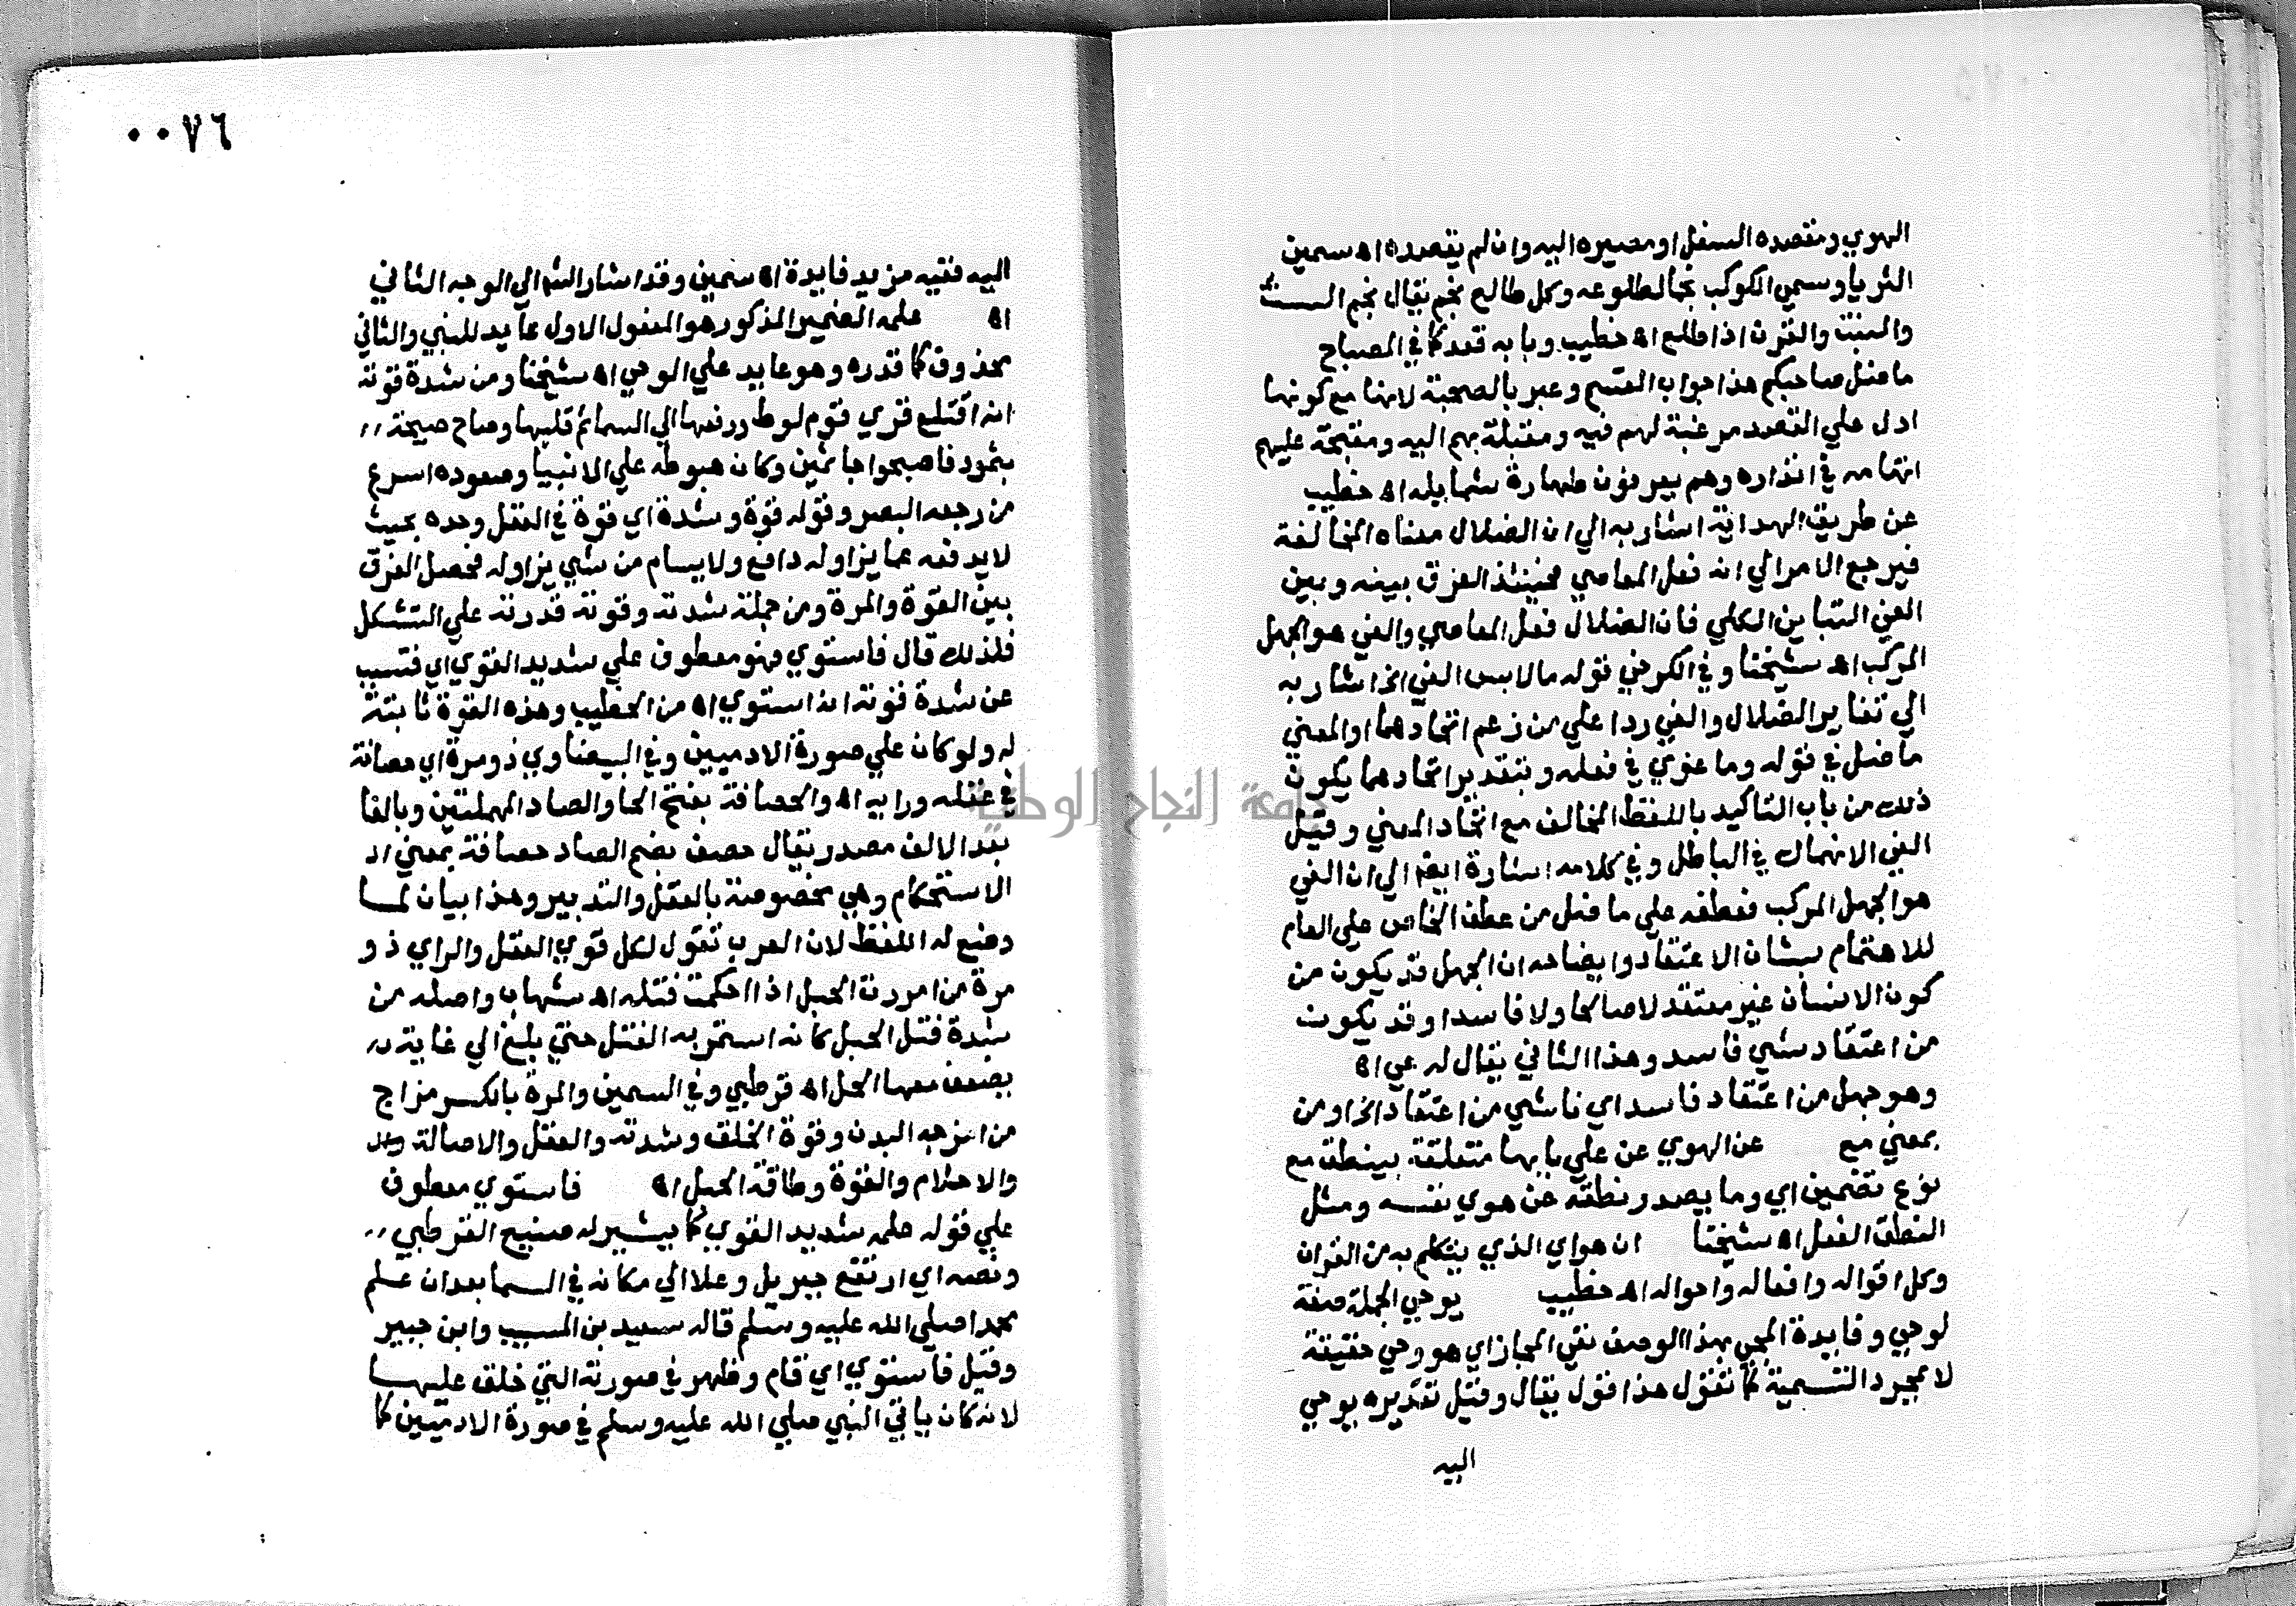 الهوي ومقصده السفل او مصيره اليه وان لم يقصده اه سمين
الثريا وسمي الكوكب نجما لطلوعه وكل طالع نجم يقال نجم السن
والنبت والقرن اذا طلع اه خطيب وبابه قعد كما في المصباح
ما ضل صاحبكم هذا جواب القسم وعبر بالصحبة لانها مع كونها
ادل علي القصد مرغبة لهم فيه ومقبلة بهم اليه ومقبحة عليهم
اتهامه في انذاره وهم يعرفون طهارة شمايله اه خطيب
عن طريق الهداية اشار به الي ان الضلال معناه المخالفة
فيرجع الامر الي انه فعل المعاصي فحينئذ الفرق بينه وبين
الغي التباين الكلي فان الضلال فعل المعاصي والغي هو الجهل
المركب اه شيخنا وفي الكرخي قوله ما لابس الغي الخ اشار به
الي تغاير الضلال والغي ردا علي من زعم اتحادهما او المعني
ما ضل في قوله وما غوي في فعله وبتقدير اتحادهما يكون
ذلك من باب التاكيد باللفظ المخالف مع اتحاد المعني وقيل
الغي الانهماك في الباطل وفي كلامه اشارة ايضا الي ان الغي
هو الجهل المركب فعطفه علي ما ضل من عطف الخاص علي العام
للاهتمام بشان الاعتقاد وايضاحه ان الجهل قد يكون من
كون الانسان غير معتقد لا صالحا ولا فاسدا وقد يكون
من اعتقاد شي فاسد وهذا الثاني يقال له غي اه
وهو جهل من اعتقاد فاسد اي ناشي من اعتقاد الخ او من
بمعني مع عن الهوي عن علي بابها متعلقة بينطق مع
نوع تضمين اي وما يصدر نطقه عن هوي نفسه ومثل
النطق الفعل اه شيخنا ان هو اي الذي يتكلم به من القران
وكل اقواله وافعاله واحواله اه خطيب يوحي الجملة صفة
لوحي وفايدة المجي بهذا الوصف نفي المجاز اي هو وحي حقيقة
لا بمجرد التسمية كما تقول هذا قول يقال وقيل تقديره يوحي
اليه
٠٠٧٦
اليه ففيه مزيد فايدة اه سمين وقد اشار الش الي الوجه الثاني
اه علمه الضمير المذكور هو المفعول الاول عايد للنبي والثاني
محذوف كما قدره وهو عايد علي الوحي اه شيخنا ومن شدة قوته
انه اقتلع قري قوم لوط ورفعها الي السما ثم قلبها وصاح صيحة
بثمود فاصبحوا جاثمين وكان هبوطه علي الانبيا وصعوده اسرع
من رجعه البصر وقوله قوة وشدة اي قوة في العقل وحده بحيث
لا يدفعه عما يزاوله دافع ولا يسام من شي يزاوله فحصل الفرق
بين القوة والمرة ومن جملة شدته وقوته قدرته علي التشكل
فلذلك قال فاستوي فهو معطوف علي شديد القوي اي فتسبب
عن شدة قوته انه استوي اه من الخطيب وهذه القوة ثابتة
له ولو كان علي صورة الادميين وفي البيضاوي ذو مرة اي حصافة
في عقله ورايه اه والحصافة بفتح الحا والصاد المهملتين وبالفا
بعد الالف مصدر يقال حصف بضم الصاد حصافة بمعني اد
الاستحكام وهي مخصوصة بالعقل والتدبير وهذا بيان لما
وضع له اللفظ لان العرب تقول لكل قوي العقل والراي ذو
مرة من امررت الحبل اذا احكمت فتله اه شهاب واصله من
شدة فتل الحبل كانه استمر به الفتل حتي بلغ الي غاية
يضعف معها الحل اه قرطبي وفي السمين والمرة بالكسر مزاج
من امزجه البدن وقوة الخلق وشدته والعقل والاصالة
والاحكام والقوة وطاقة الحبل اه فاستوي معطوف
علي قوله علمه شديد القوي كما يشير له صنيع القرطبي
ونصه اي ارتفع جبريل وعلا الي مكانه في السما بعد ان علم
محمدا صلي الله عليه وسلم قاله سعيد بن المسيب وابن جبير
وقيل فاستوي اي قام وظهر في صورته التي خلق عليها
لانه كان ياتي النبي صلي الله عليه وسلم في صورة الادميين كما
جامعة النجاح الوطنية